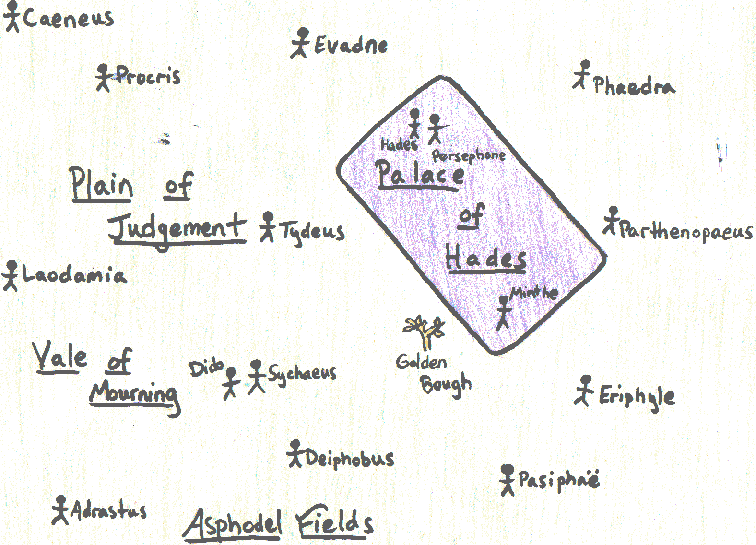 Caeneus
Evadne
Procris
Phaedra
Hades
Persephone
Palace
of
Hades
Minthe
Plain of
Judgement
Tydeus
Parthenopaeus
Laodamia
Vale of
Mourning
Dido
Sychaeus
Golden
Bough
Eriphyle
Deiphobus
Pasiphaë
Adrastus
Asphodel Fields